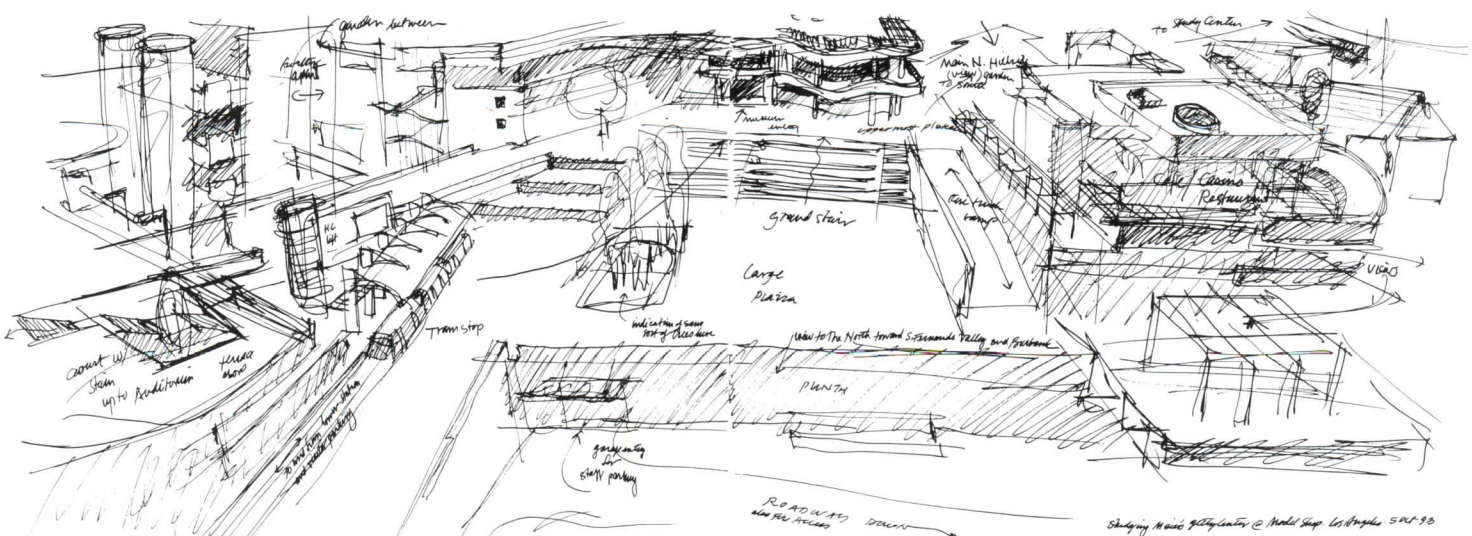 garden between
to Study Center
Main N. Hillside
(view) garden
TO
museum
entry
uppermost plaza
Café / Casino
Restaurant
HC
lift
ramp
grand stair
Large
Plaza
VIEWS
Tram Stop
indication of some
sort of
view to the North toward S. Fernando Valley and Burbank
court w/
stair
up to Auditorium
terrace
above
PLINTH
to and from lower station
and public parking
garage entry
for
staff parking
ROADWAY DOWN
also for Access
Studying Meier's getty center @ Model Shop. Los Angeles. 5 Oct 93